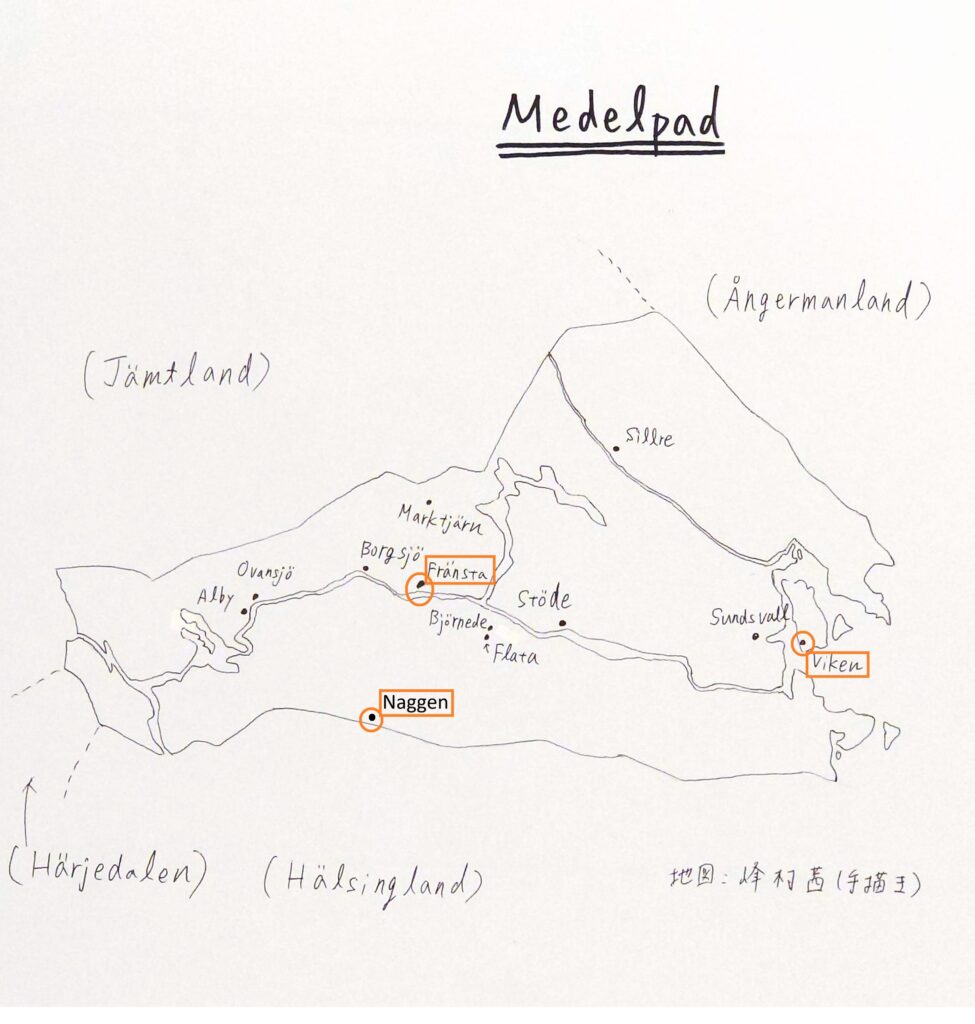 Medelpad
(Ångermanland)
(Jämtland)
Sillre
Marktjärn
Borgsjö
Fränsta
Ovansjö
Alby
Stöde
Björnede
Flata
Sundsvall
Viken
Naggen
(Härjedalen)
(Hälsingland)
地図：峰村茜(手描き)